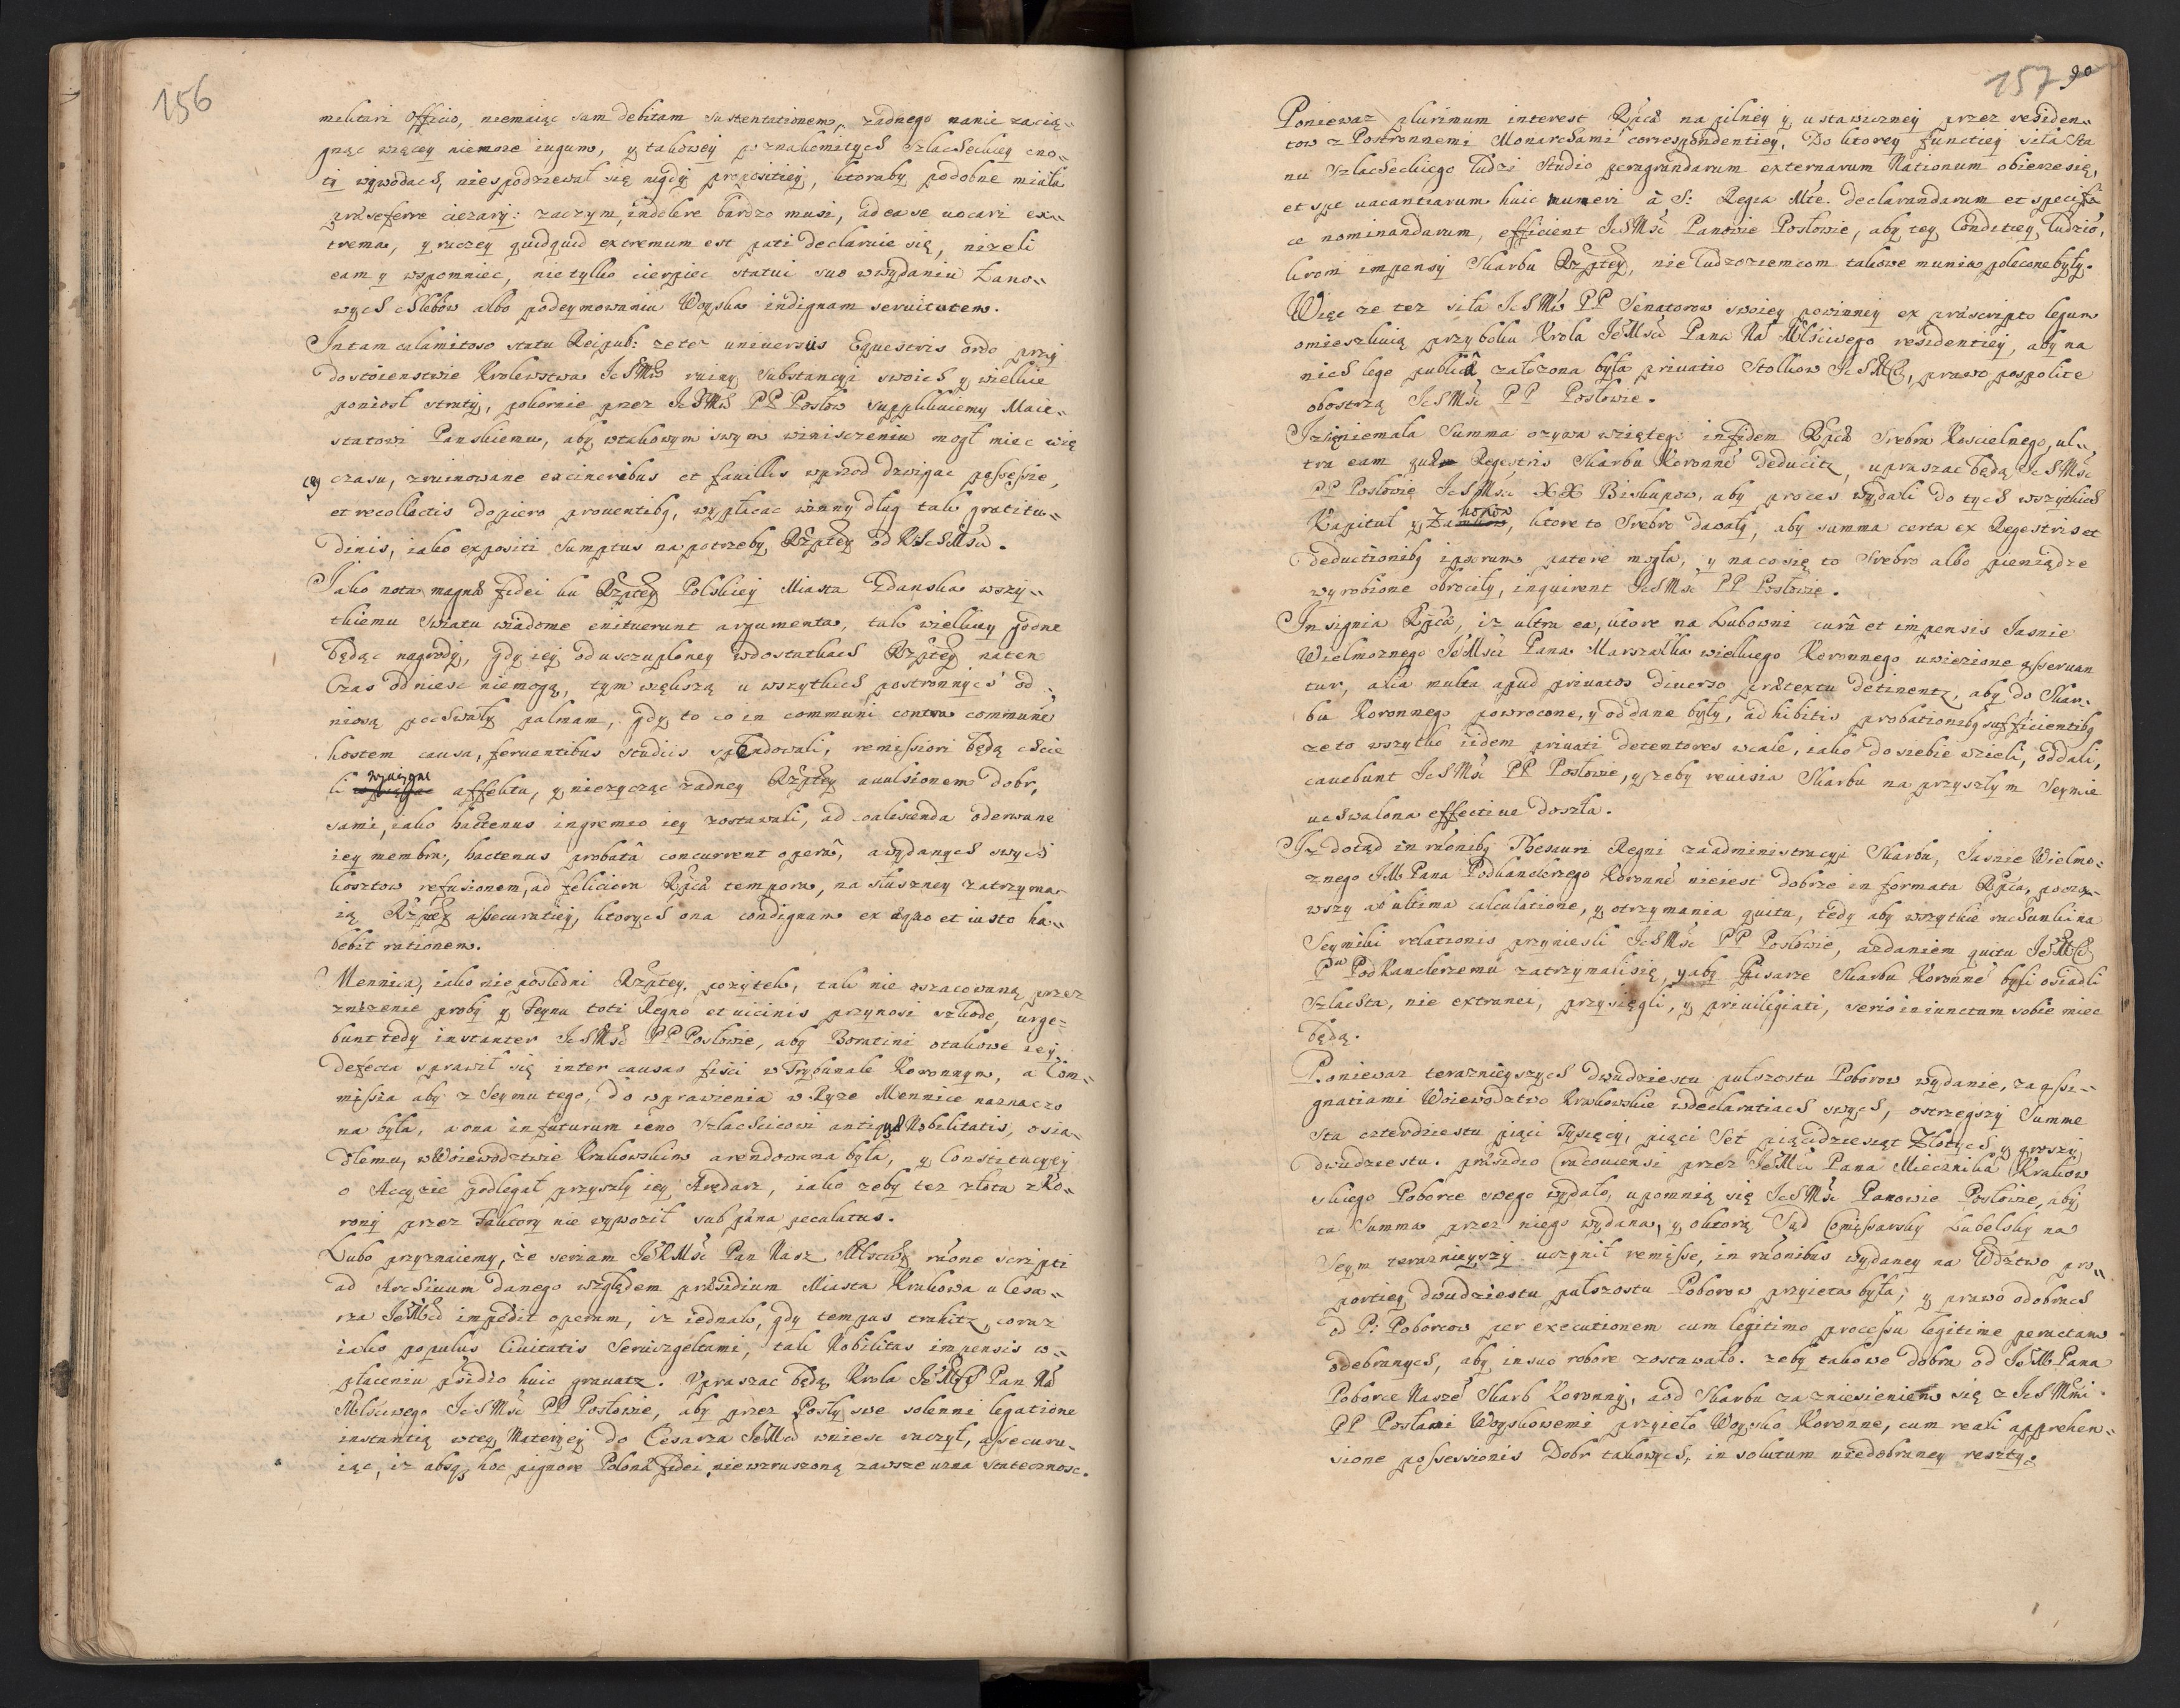 156
militari officio, niemaiąc sam debitam sustentationem, zadnego nanie zacią„
gnąc więcey niemoze iugum, y takowey po znakomitych szlacheckiey cno„
ty wywodach, niespodziewał się nigdy propositiey, ktoraby podobne miała
præseferre ciezary: zaczym, indolere bardzo musi, ad ea se uocari ex„
trema, y raczey quidquid extremum est pati declaruie się, nizeli
eam y wspomniec, nie tylko cierpiec statui suo wwydaniu Łano„
wych chlebow albo podeymowaniu Woyska indignam seruitutem.
In tam calamitoso statu Reipub: ze tez uniuersus Equestris ordo przy
dostoienstwie Krolewstwa IchMć ruiny substancyi swoich y wielkie
poniosł straty, pokornie przez IchMć PP Posłow supplikuiemy Maie„
statowi Panskiemu, aby wtakowym swym winisczeniu mogł miec wię
cey czasu, zruinowane ex cineribus et fauillis wprzod dzwigac possessie,
et recollectis dopiero prouentibq, wypłacac winny dług tak gratitu„
dinis, iako expositi sumptus na potrzeby Rzptey od KIchMści.
Iako nota magnæ fidei ku Rzptey Polskiey Miasta Gdanska wszy„
tkiemu swiatu wiadome enituerunt argumenta, tak wielkiey godne
będąc nagrody, gdy iey od usczupłoney wdostatkach Rzptey na ten
Czas odniesc niemogą, tym większą u wszytkich postronnych od„
niosą pochwały palmam, gdy to co in communi contra commune
hostem causa, feruentibus studiis spendowali, remissiori będą chcie
li wyciągac affektu, y niezycząc zadney Rzptey auulsionem dobr,
sami, iako hactenus ingremio iey zostawali, ad coalescenda oderwane
iey membra, hactenus probatâ concurrent operâ, a wydanych swych
kosztow refusionem, ad feliciora Rpcæ tempora, na słuszney zatrzyma
ią Rzptey assecuratiey, ktorych ona condignam ex æquo et iusto ha„
bebit rationem.
Mennica, iako nie posledni Rzptey pozytek, tak nie oszacowaną przez
znizenie proby y Feynu toti Regno et uicinis przynosi szkodę, urge=
bunt tedy instanter IchMść PP Posłowie, aby Boratini o takowe iey
defecta sprawił się inter causas fisci w Trybunale Koronnym, a Com„
missia aby z Seymu tego, do wprawienia w Ryze Mennice naznaczo
na była, a ona infuturum ieno szlachcicowi antiquæ Nobilitatis, osia„
dłemu, w Woiewodztwie Krakowskim arendowana była, y Constitucyey
o Accyzie podlegał przyszły iey Arędarz, iako zeby tez złota z Ko„
rony przez Faktory nie wywoził sub pœna peculatus.
Lubo przyznaiemy, że seriam IeKMść Pan Nasz Młsciwy raõne scripti
ad Archiuum danego względem præsidium Miasta Krakowa u Cesa„
rza IeMci impedit operam, iz iednak, gdy tempus trahitz, coraz
iako populus Ciuitatis Seruizgeltami, tak Nobilitas impensis w„
płaceniu psidio huic grauatz. Vpraszac będą Krola IeMci Pan Na
Młściwego IchMść PP Posłowie, aby przez Posły swe solenni legatione
instantią wtey Materyey do Cesarza IeMci wniesc raczył, assecuru„
iąc, iz absq; hoc pignore Polona fidei, niewzruszoną zawsze uzna statecznosc.
157 90
Poniewaz plurimum interest Rpcæ na pilney y ustawiczney przez residen„
tow z Postronnemi Monarchami correspondentiey, Do ktorey functiey siła sta
nu szlacheckiego ludzi studio peragrandarum externarum Nationum obierze się,
et spe uacantiarum huic muneri à S: Regia Mte. declarandarum et specifi
ce nominandarum, efficient IchMść Panowie Posłowie, aby tey Conditiey, ludziõ,
krom impensy skarbu Rzptey, nie Cudzoziemcom takowe munia polecone były.
Więc ze tez siła IchMć PP Senatorow swoiey powinney ex præscripto legum
omieszkiwią przy boku Krola IeMści Pana Na Mściwego residentiey, aby na
nich lege publicâ załozona była priuatio Stołkow IchMć, prawo pospolite
obostrzą IchMść PP Posłowie.
Iz się niemała summa ozywa wziętego infidem Rpcæ srebra Koscielnego, ul„
tra eam quæ Regestris skarbu Koronnê deducitz, upraszac będą IchMść
PP Posłowie IchMści XX Biskupow, aby proces wydali do tych wszytkich
Kapituł y Zakonow, ktore to srebro dawały, aby summa certa ex Regestris et
deductionibq ipsorum patere mogła, y na co się to srebro albo pieniądze
wyrobione obrociły, inquirent IchMść PP Posłowie.
Insignia Rpcæ, iz ultra ea, ktore na Lubowni curâ et impensis Iasnie
Wielmoznego IeMści Pana Marszałka wielkiego Koronnego uwiezione asseruan
tur, alia multa apud priuatos diuerso prætextu detinentz, aby do skar„
bu Koronnego powrocone, y oddane były, adhibitis probationibq sufficientibq
ze to wszytko iidem priuati detentores wcale, iako do siebie wzieli, oddali,
cauebunt IchMść PP Posłowie, y zeby reuisia skarbu na przyszłym Seymie
uchwalona effectiue doszła.
Iz dotąd in raõnibq Thesauri Regni za administracyi skarbu, Iasnie Wielmo„
znego IMPana Podkanclerzego Koronnê nieiest dobrze informata Rpca, począ„
wszy ab ultima calculatione, y otrzymania quitu, tedy aby wszytkie rachunki na
Seymiki relationis przyniesli IchMść PP Posłowie, a zdaniem quitu IeMci
Pu PodKanclerzemu zatrzymali się, y aby Pisarze skarbu Koronnê byli osiadli
szlachta, nie extranei, przysięgli, y priuilegiati, serio iniunctum sobie miec
będą.
Poniewaz teraznieyszych dwudziestu pułszostu Poborow wydanie, za assi„
gnatiami Woiewodztwo Krakowskie wdeclaratiach swych, ostrzegszy summe
sta czterdziestu pięci Tysięcy, pięci set pięcidziesiąt Złotych, y groszy
dwudziestu. præsidio Cracouiensi przez IeMci Pana Miecznika Krakow
skiego Poborce swego wydało, upomnią się IchMść Panowie Posłowie, aby
ta summa przez niego wydana, y oktorą Sąd Comissarsky Lubelsky na
Seym teraznieyszy uczynił remisse, in raõnibus wydaney na Wdztwo pro„
portiey dwudziestu pułszostu Poborow przyięta była, y prawo o dobrach
od P: Poborcow per executionem cum legitimo processu legitime peractam
odebranych, aby in suo robore zostawało. zeby takowe dobra od IeMPana
Poborce Naszê skarb Koronny, a od skarbu za zniesieniem się z IchMćmi
PP Posłami Woyskowemi przyięło Woysko Koronne, cum reali apprehen„
sione possessionis Dobr takowych, in solutum niedobraney reszty.